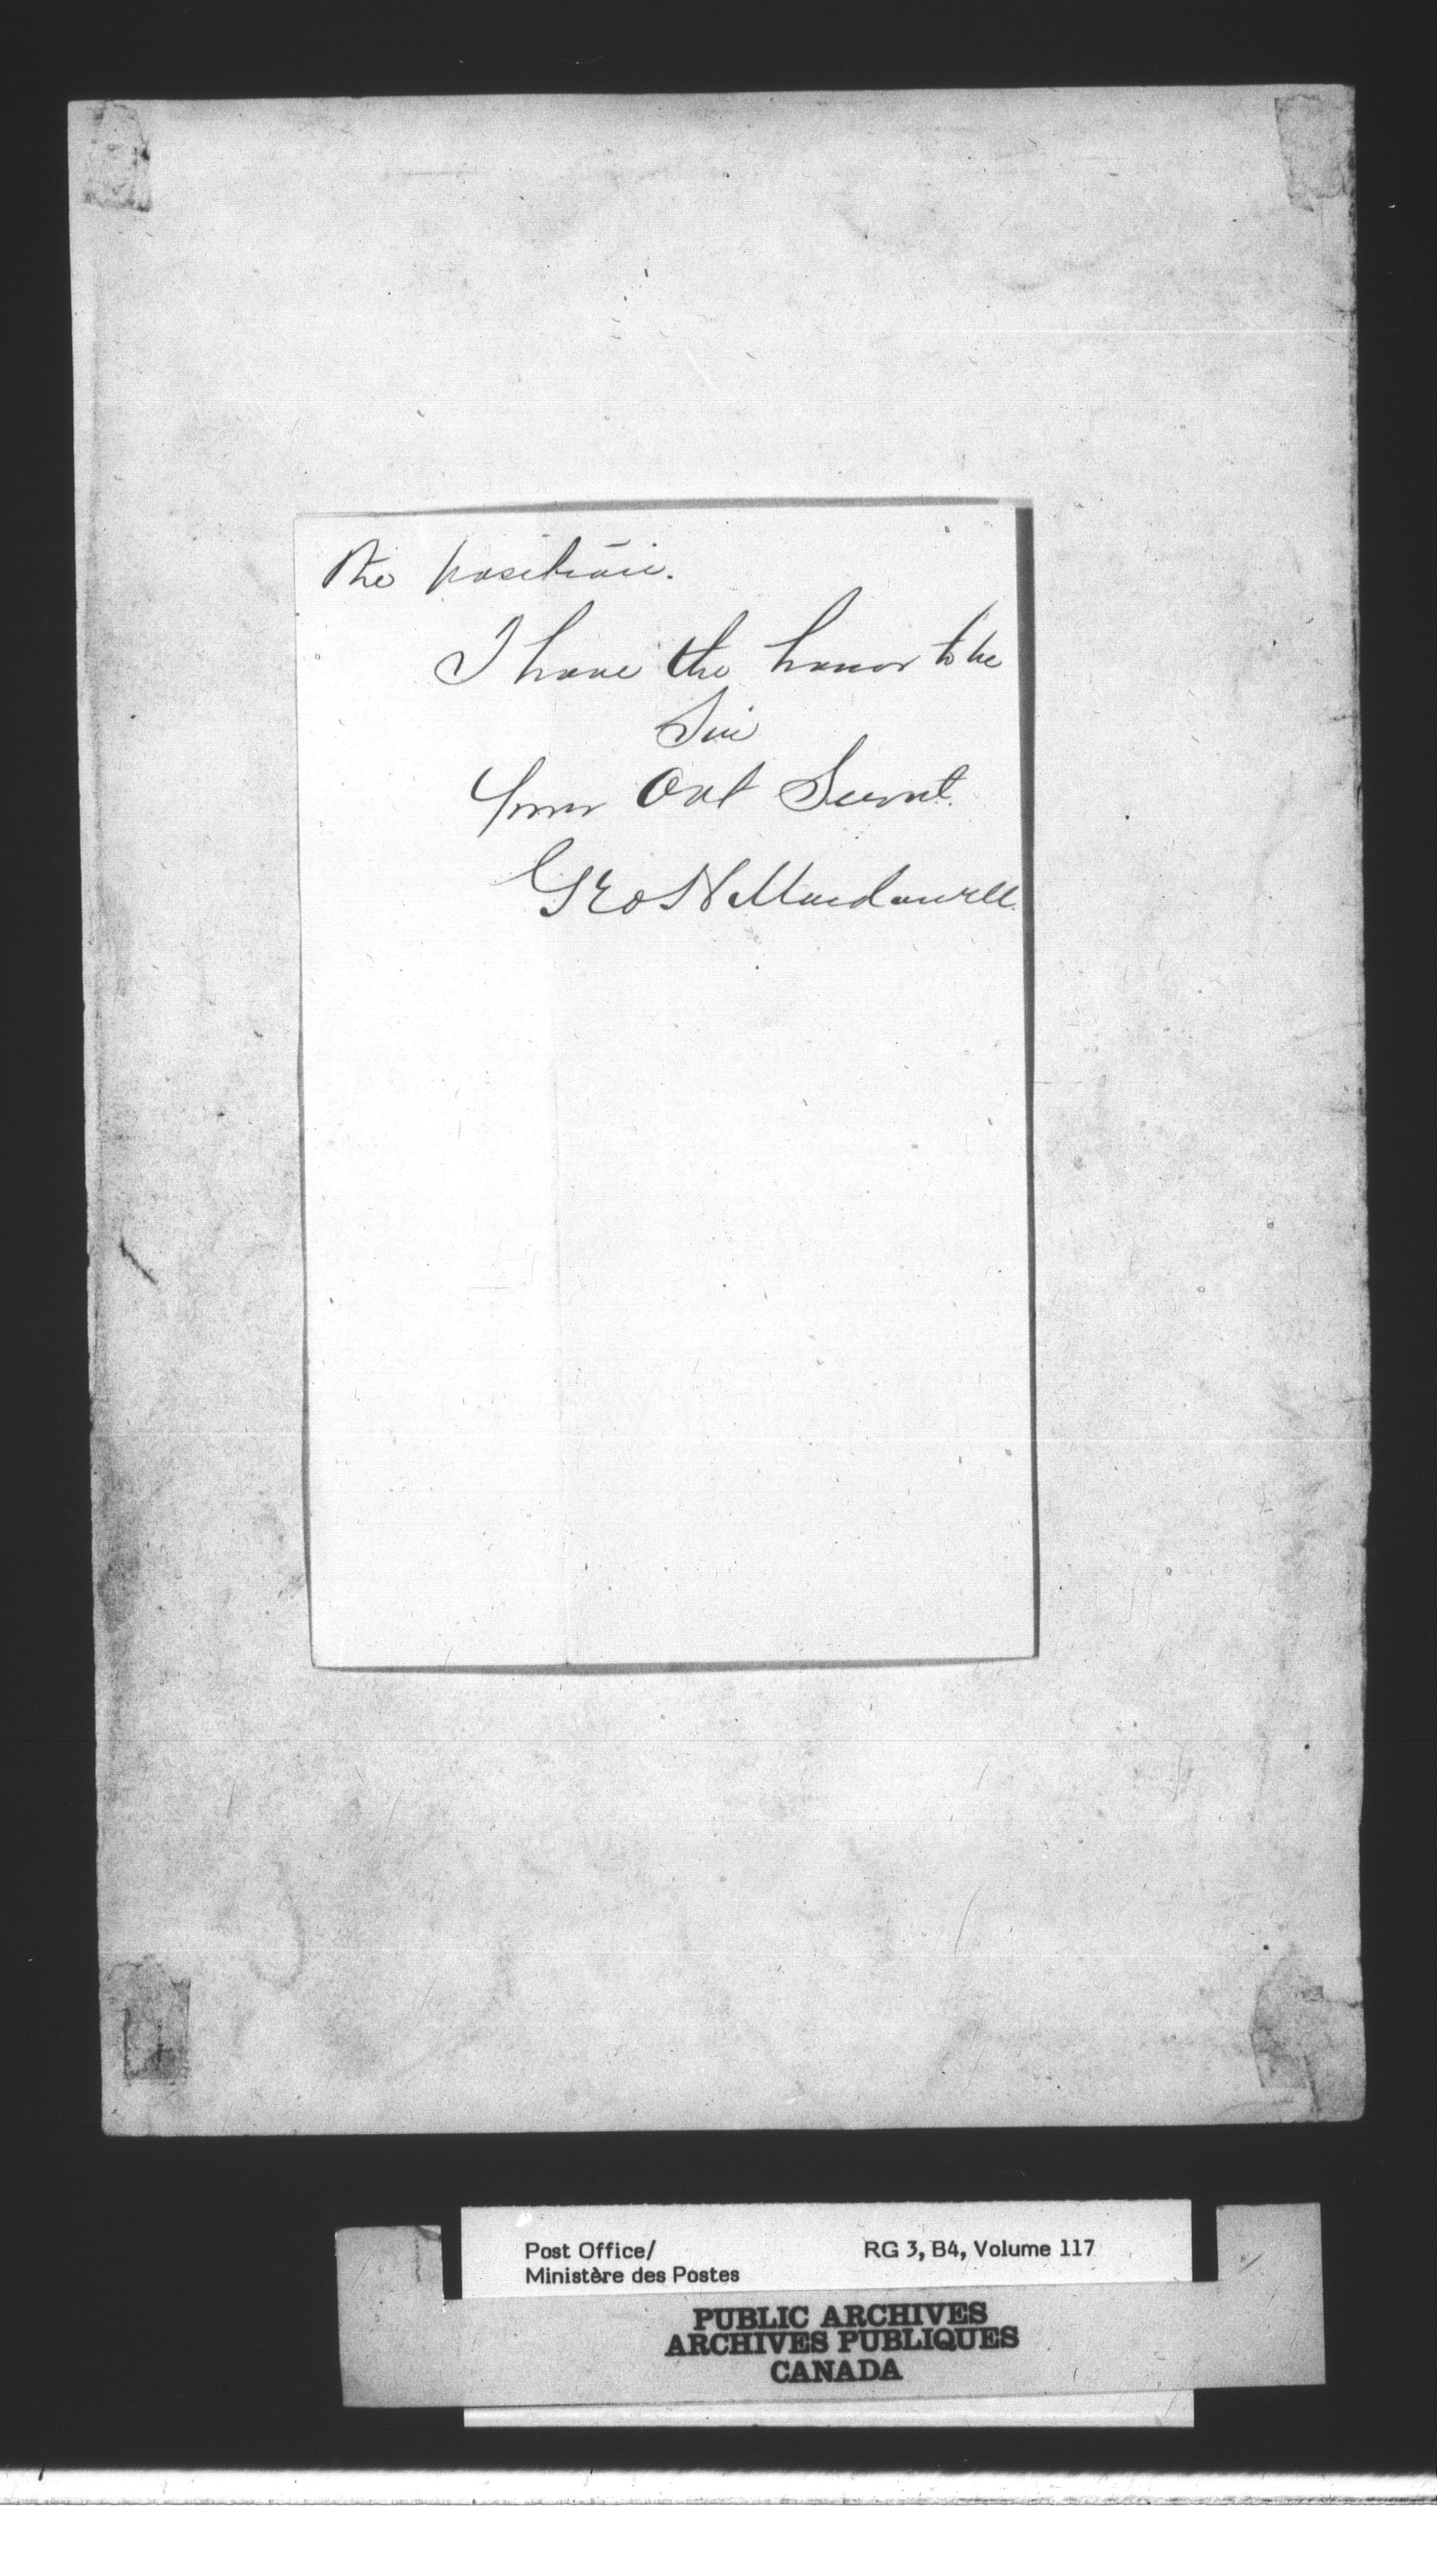 the position.
I have the honor to be
Sir
Your Obt Servnt.
Geo H Macdowell.
Post Office/
Ministère des Postes
RG 3, B4, Volume 117
PUBLIC ARCHIVES
ARCHIVES PUBLIQUES
CANADA